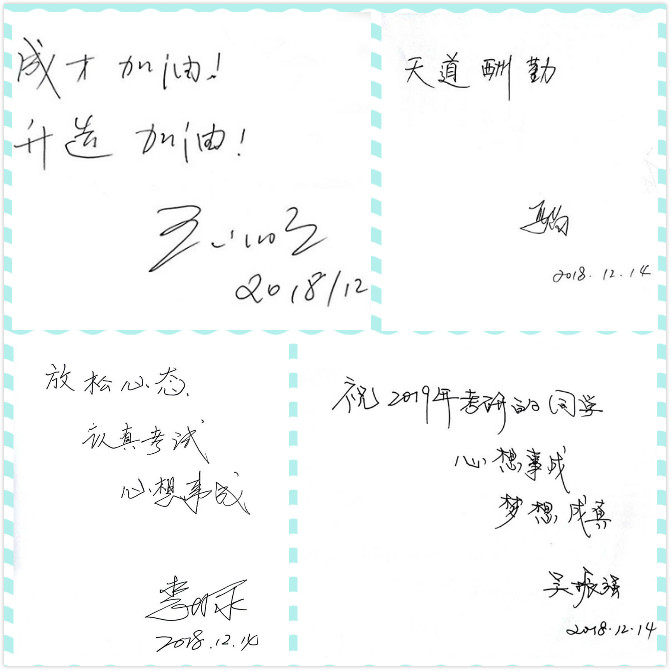 成才 加油!
升造 加油!
2018/12
天道酬勤
2018.12.14
放松心态、
认真考试
心想事成
2018.12.14
祝2019年考研的同学
心想事成
梦想成真
吴振强
2018.12.14